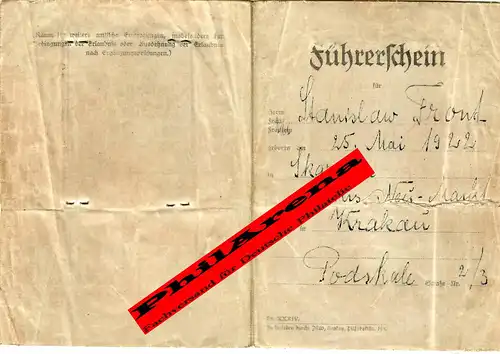 (Raum für weitere amtliche Eintragungen, insbesondere für
Bedingungen der Erlaubnis oder Ausdehnung der Erlaubnis
nach Ergänzungsprüfungen.)
Führerschein
für
Herrn
Frau
Fräulein
Stanislaw Front
geboren am 25. Mai 1922
in
Neu-Markt
in Krakau
Podskale Straße Nr. 2/3
PhilArena
Fachversand für Deutsche Philatelie